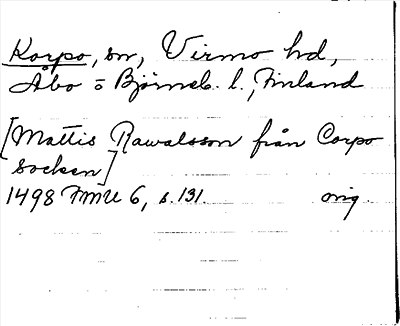 Korpo, sn, Virmo hd,
Åbo o Björneb. l., Finland
[Mattis Rawalsson från Corpo
Socken]
1498 FMU 6, s. 131. orig.